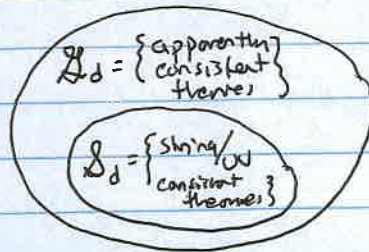 𝒢_d = { apparently
consistent
theories }
𝒮_d = { string/UV
consistent
theories }